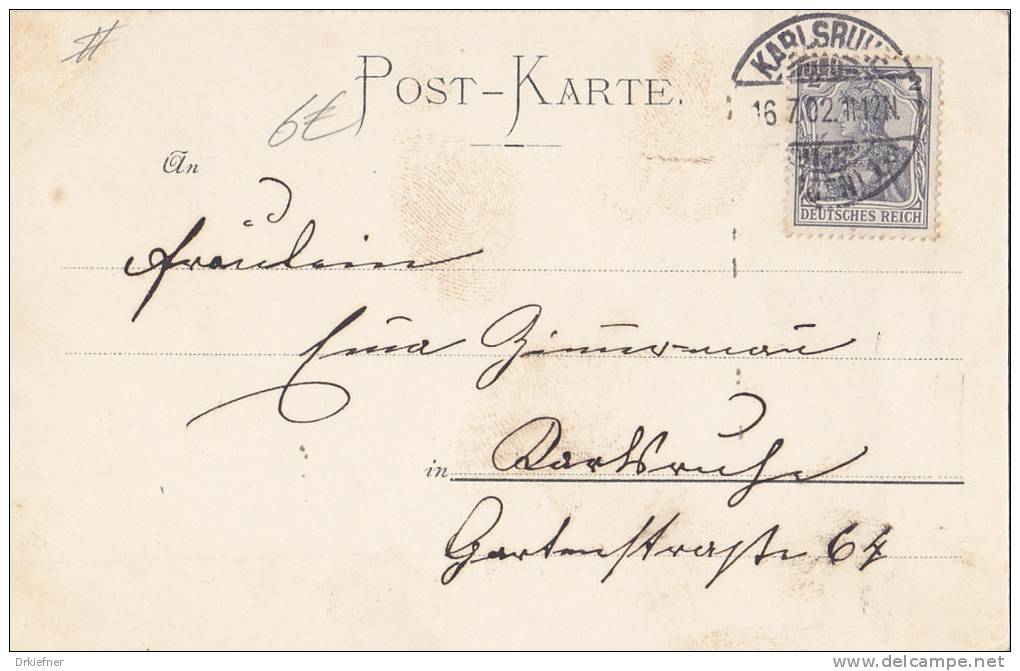 POST-KARTE.
6€
KARLSRUHE
2 2
16.7.02.11-12N.
(BADEN)
DEUTSCHES REICH
An
Fräulein
Zimmerman
in Karlsruhe
Gartenstraße 64
Drkiefner
www.delcampe.net